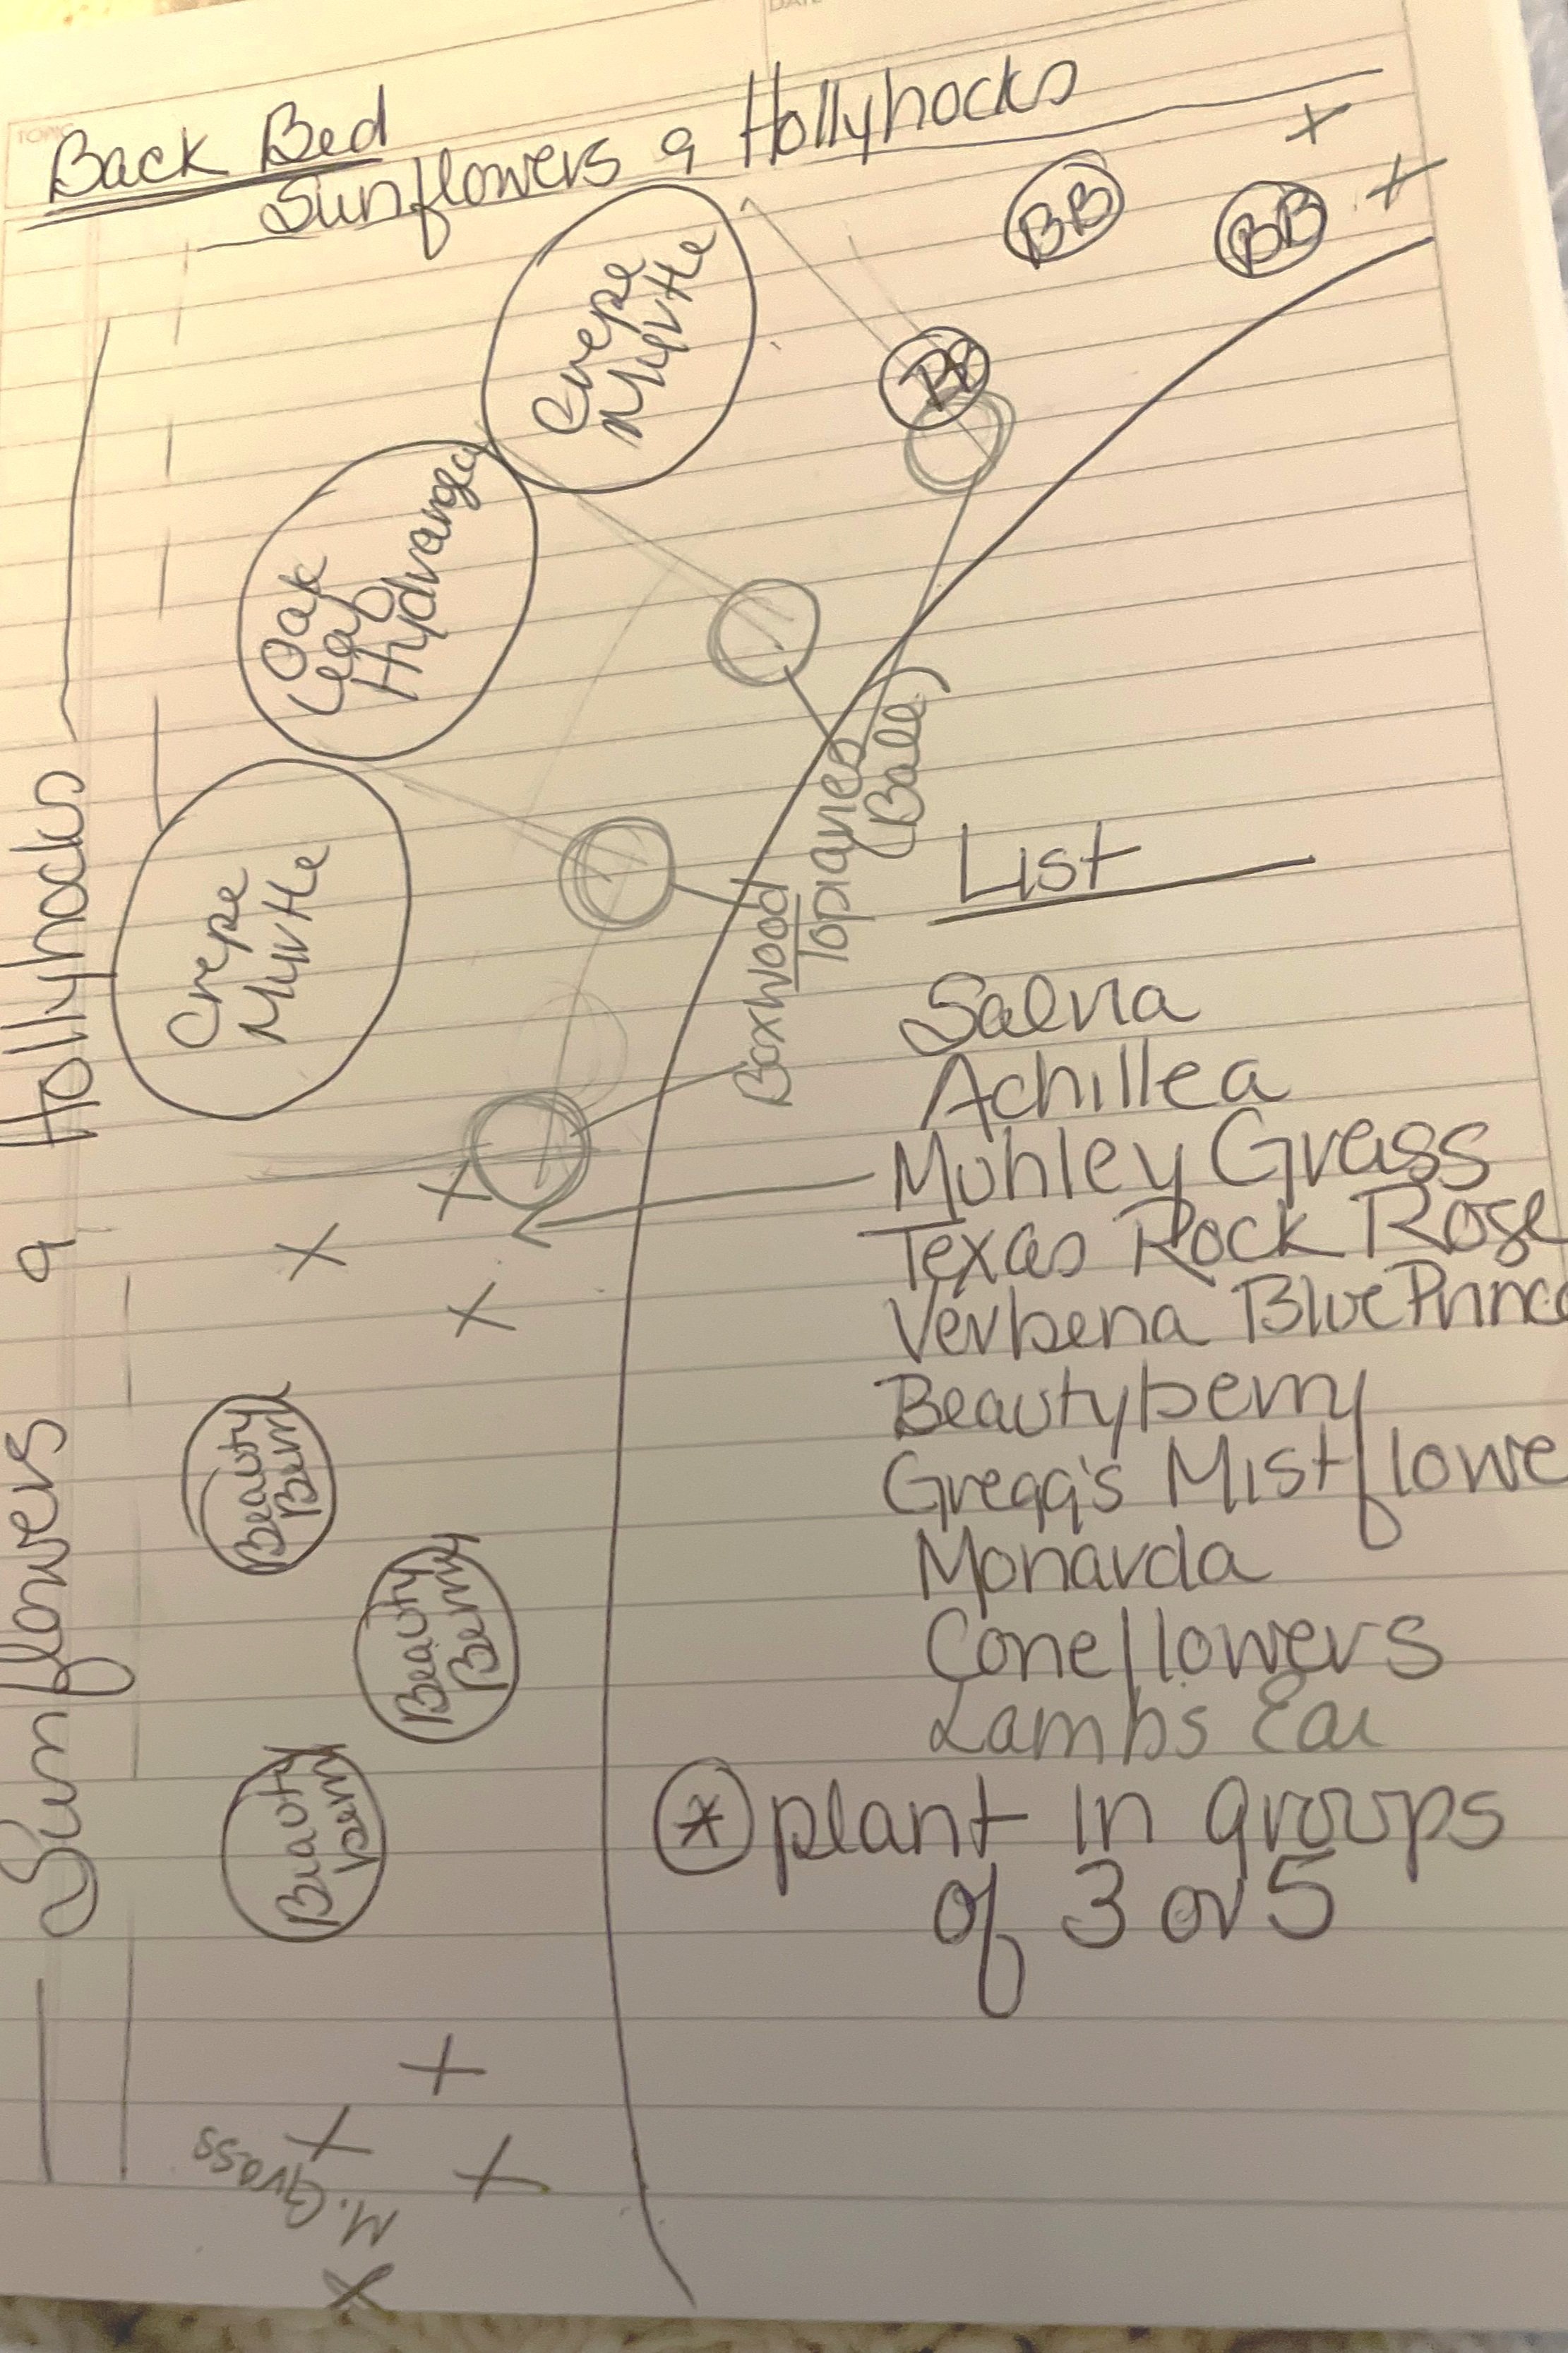 TOPIC
DATE
Back Bed
Sunflowers & Hollyhocks
BB
BB
BB
Crepe
Myrtle
Oak
Leaf
Hydrangea
Crepe
Myrtle
Sunflowers & Hollyhocks
Boxwood
Topiaries
(Ball)
Beauty
Berry
Beauty
Berry
Beauty
berry
M. Grass
List
Salvia
Achillea
Muhley Grass
Texas Rock Rose
Verbena Blue Princ
Beautyberry
Gregg's Mistflowe
Monarda
Coneflowers
Lambs Ear
* plant in groups
of 3 or 5